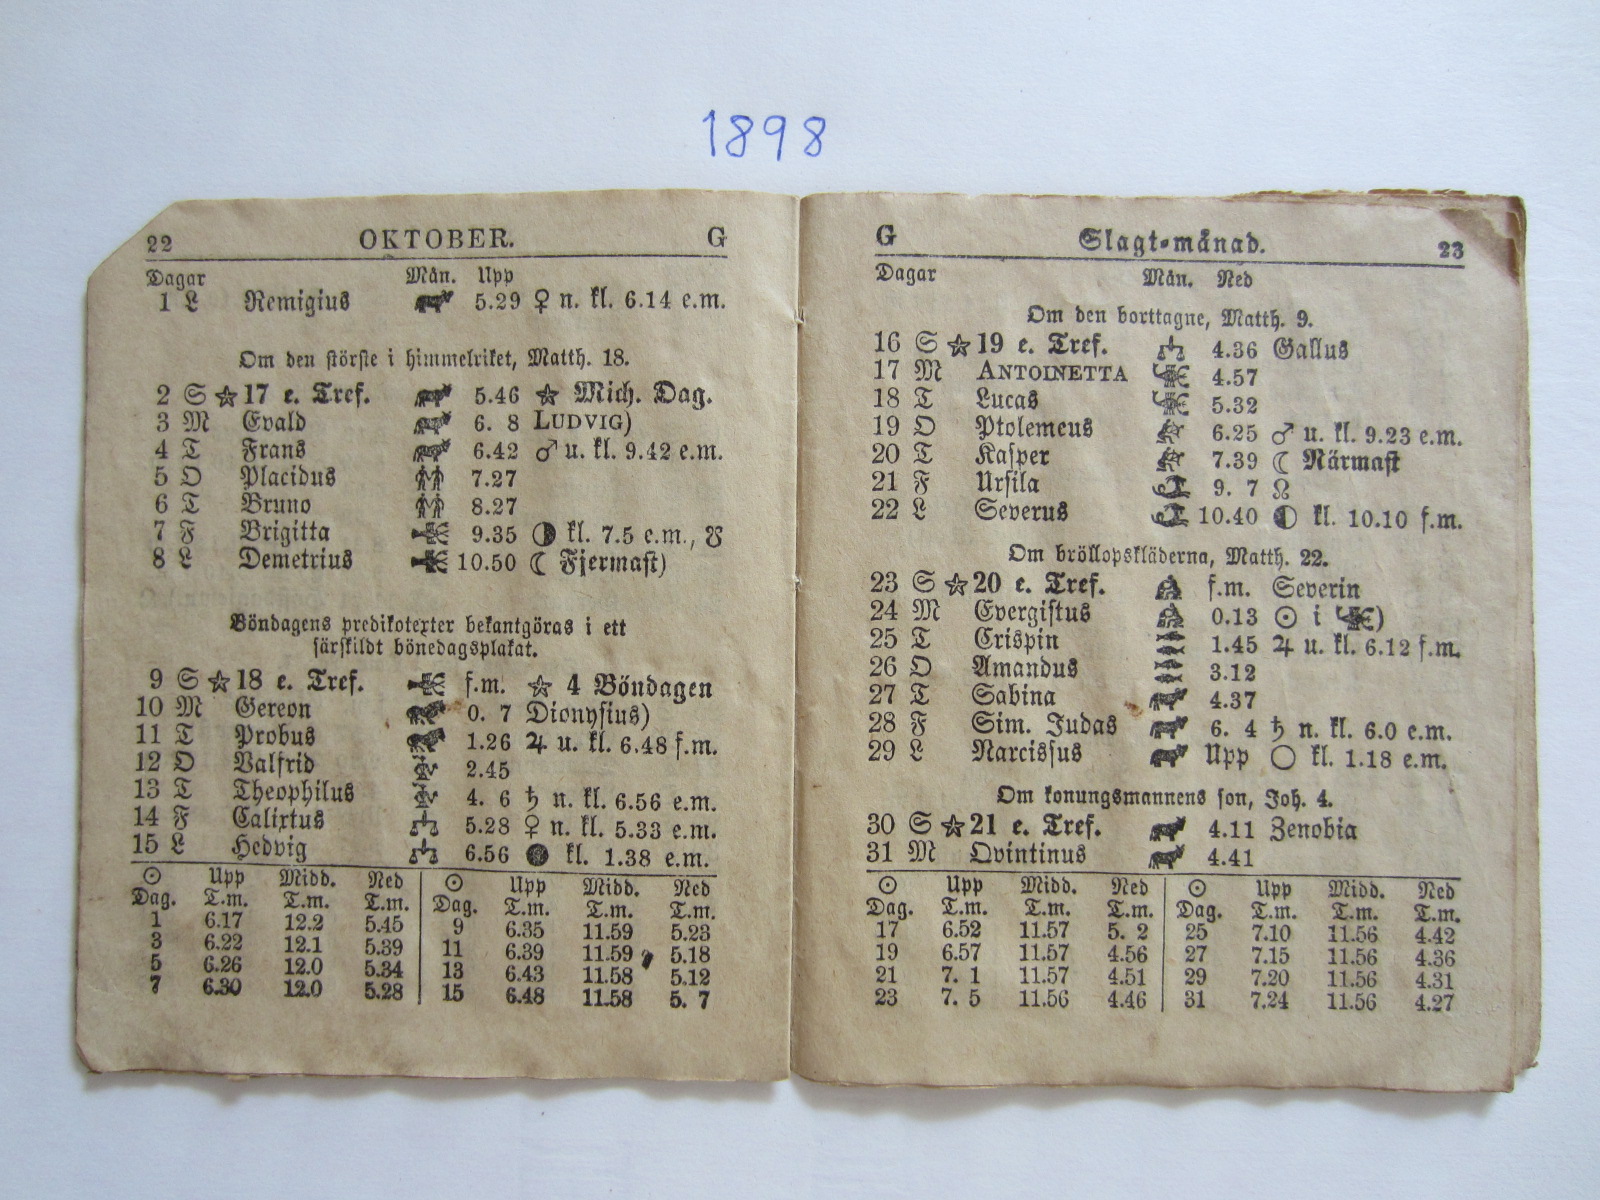 1898
22 OKTOBER. G
Dagar Mån. Upp
1 L Remigius 5.29 ♀ n. kl. 6.14 e.m.
Om den störste i himmelriket, Matth. 18.
2 S ☆ 17 e. Tref. 5.46 ☆ Mich. Dag.
3 M Evald 6. 8 LUDVIG)
4 T Frans 6.42 ♂ u. kl. 9.42 e.m.
5 O Placidus 7.27
6 T Bruno 8.27
7 F Brigitta 9.35 ◑ kl. 7.5 e.m., ☋
8 L Demetrius 10.50 ☾ Fjermast)
Böndagens predikotexter bekantgöras i ett
särskildt bönedagsplakat.
9 S ☆ 18 e. Tref. f.m. ☆ 4 Böndagen
10 M Gereon 0. 7 Dionysius)
11 T Probus 1.26 ♃ u. kl. 6.48 f.m.
12 O Valfrid 2.45
13 T Theophilus 4. 6 ♄ n. kl. 6.56 e.m.
14 F Calixtus 5.28 ♀ n. kl. 5.33 e.m.
15 L Hedvig 6.56 ● kl. 1.38 e.m.
☉ Upp Midd. Ned ☉ Upp Midd. Ned
Dag. T.m. T.m. T.m. Dag. T.m. T.m. T.m.
1 6.17 12.2 5.45 9 6.35 11.59 5.23
3 6.22 12.1 5.39 11 6.39 11.59 5.18
5 6.26 12.0 5.34 13 6.43 11.58 5.12
7 6.30 12.0 5.28 15 6.48 11.58 5. 7
G Slagt-månad. 23
Dagar Mån. Ned
Om den borttagne, Matth. 9.
16 S ☆ 19 e. Tref. 4.36 Gallus
17 M ANTOINETTA 4.57
18 T Lucas 5.32
19 O Ptolemeus 6.25 ♂ u. kl. 9.23 e.m.
20 T Kasper 7.39 ☾ Närmast
21 F Ursila 9. 7 ☊
22 L Severus 10.40 ◐ kl. 10.10 f.m.
Om bröllopskläderna, Matth. 22.
23 S ☆ 20 e. Tref. f.m. Severin
24 M Evergistus 0.13 ☉ i )
25 T Crispin 1.45 ♃ u. kl. 6.12 f.m.
26 O Amandus 3.12
27 T Sabina 4.37
28 F Sim. Judas 6. 4 ♄ n. kl. 6.0 e.m.
29 L Narcissus Upp ○ kl. 1.18 e.m.
Om konungsmannens son, Joh. 4.
30 S ☆ 21 e. Tref. 4.11 Zenobia
31 M Qvintinus 4.41
☉ Upp Midd. Ned ☉ Upp Midd. Ned
Dag. T.m. T.m. T.m. Dag. T.m. T.m. T.m.
17 6.52 11.57 5. 2 25 7.10 11.56 4.42
19 6.57 11.57 4.56 27 7.15 11.56 4.36
21 7. 1 11.57 4.51 29 7.20 11.56 4.31
23 7. 5 11.56 4.46 31 7.24 11.56 4.27